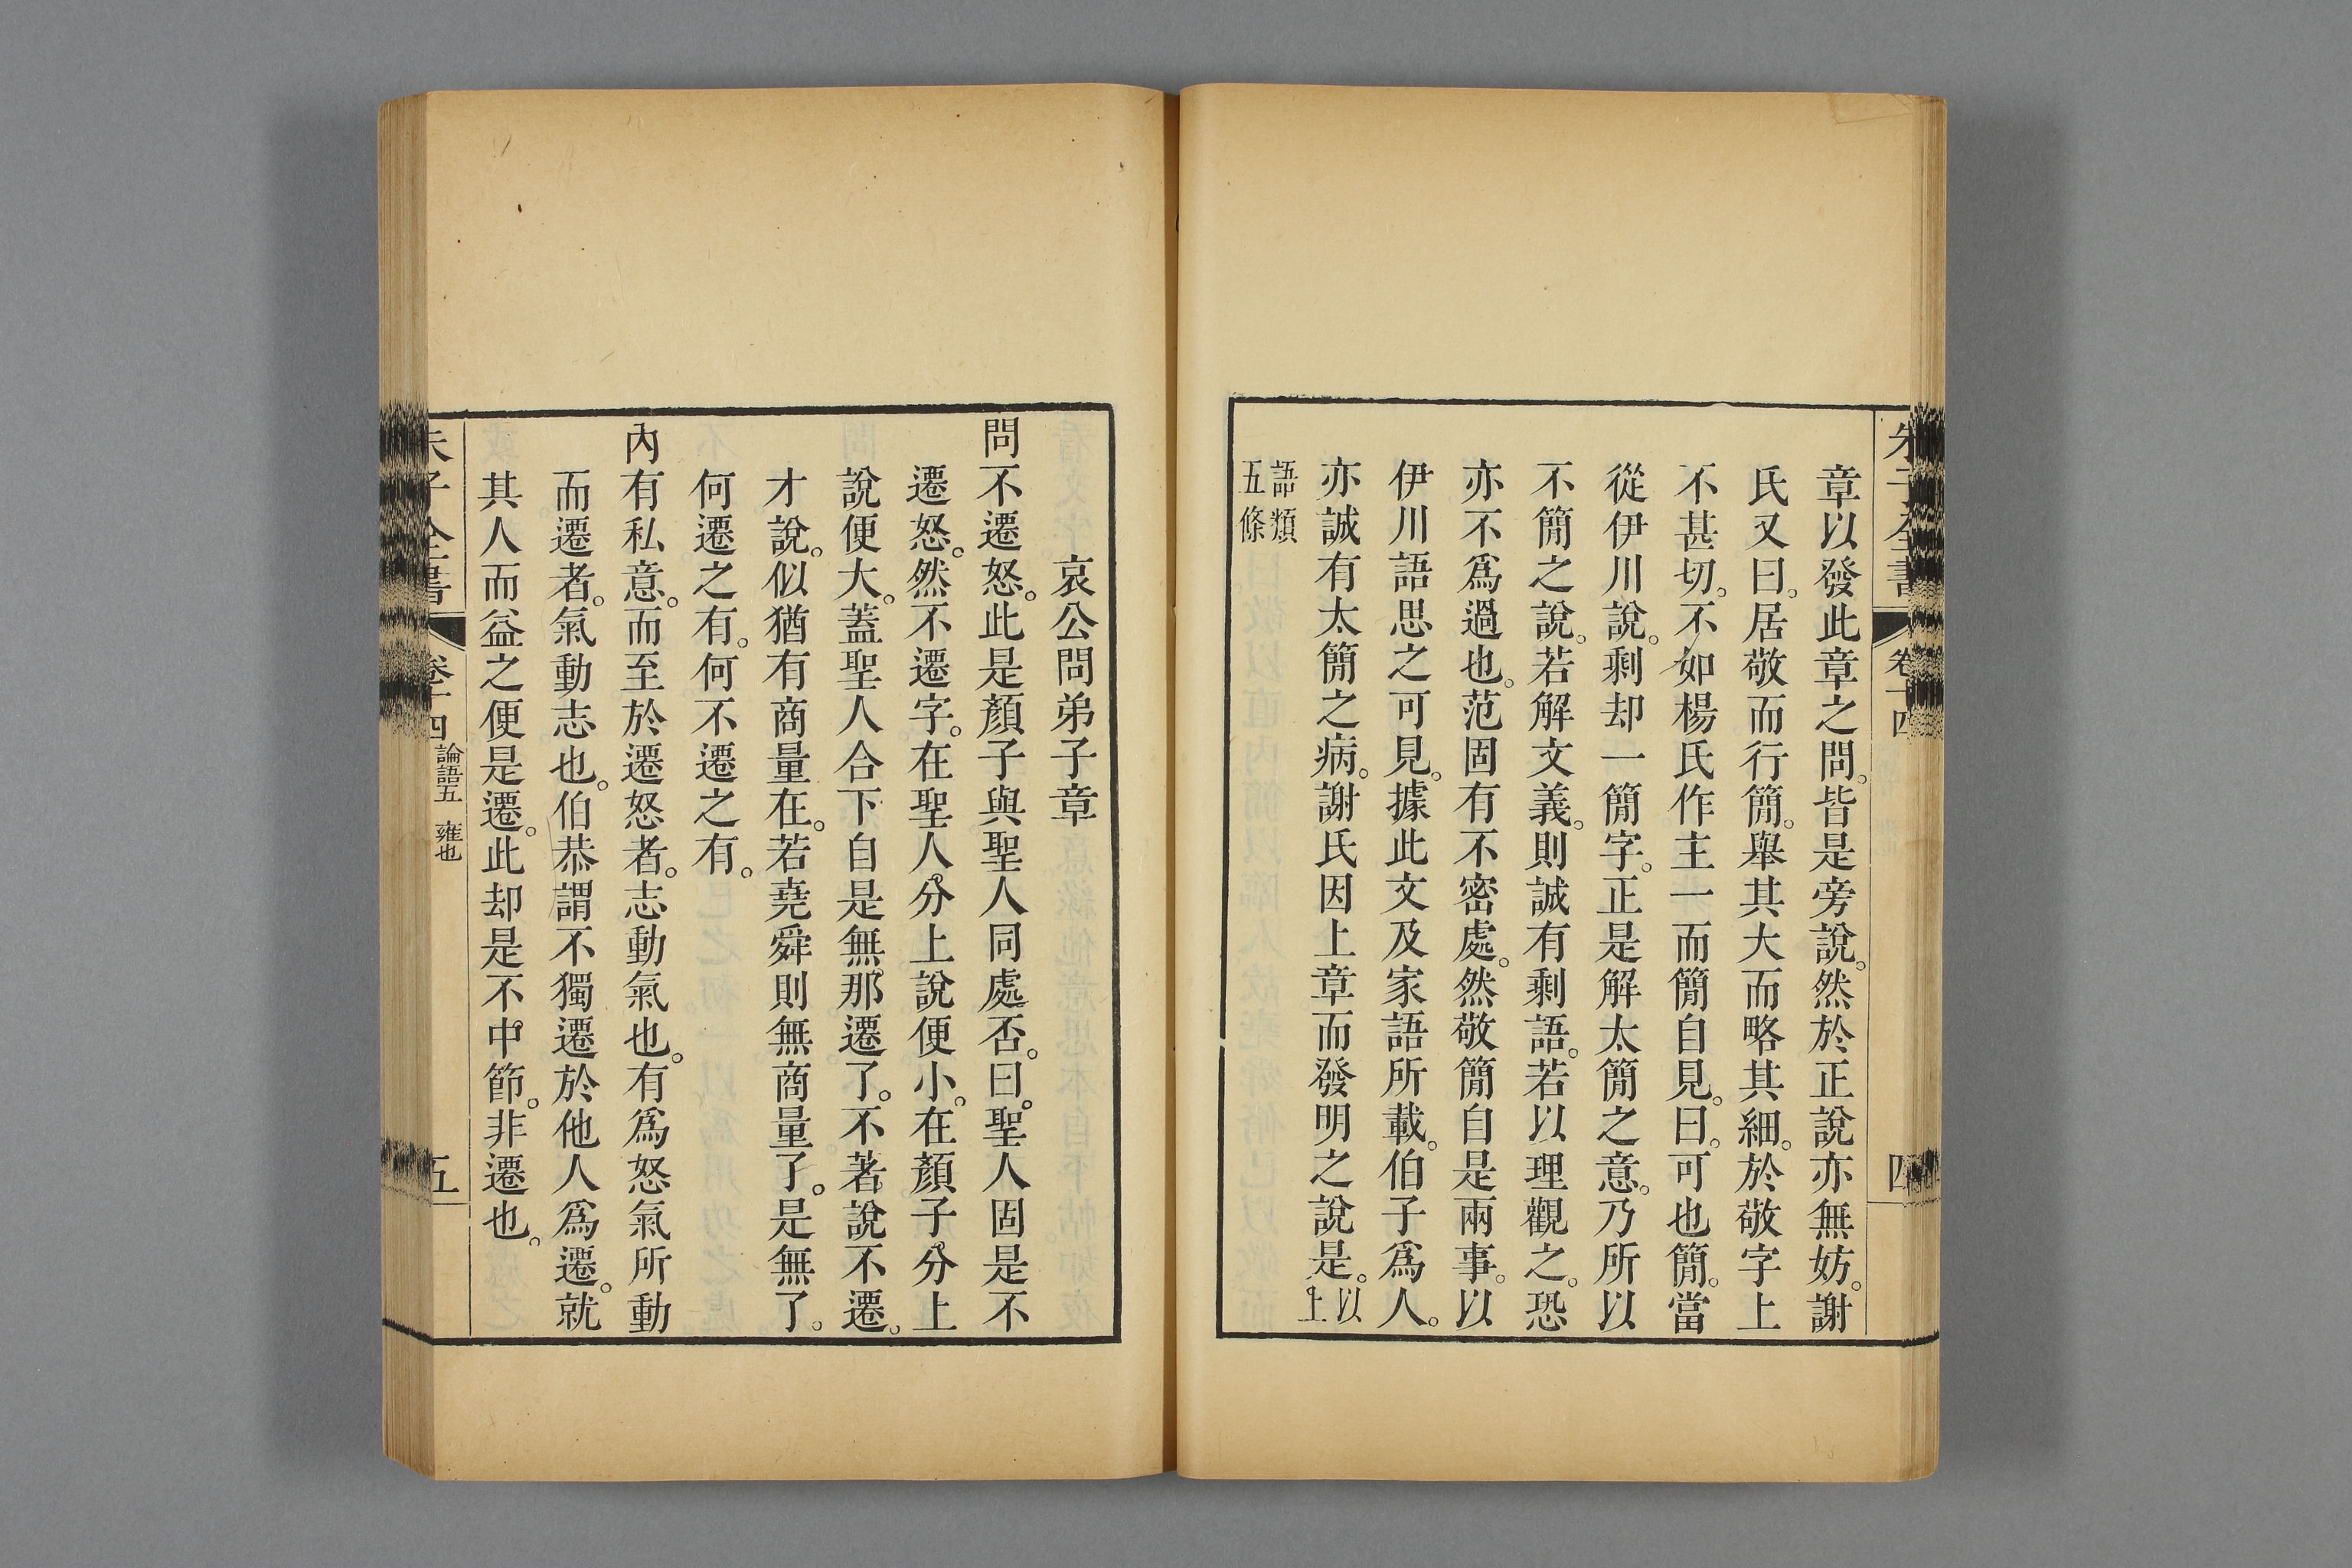 朱子全書 卷十四 四
章以發此章之問。皆是旁說。然於正說亦無妨。謝
氏又曰。居敬而行簡。舉其大而略其細。於敬字上
不甚切。不如楊氏作主一而簡自見。曰。可也簡。當
從伊川說。剩却一簡字。正是解太簡之意。乃所以
不簡之說。若解文義。則誠有剩語。若以理觀之。恐
亦不爲過也。范固有不密處。然敬簡自是兩事。以
伊川語思之可見。據此文及家語所載。伯子爲人。
亦誠有太簡之病。謝氏因上章而發明之說是。以上
語類五條
哀公問弟子章
問不遷怒。此是顏子與聖人同處否。曰。聖人固是不
遷怒。然不遷字。在聖人分上說便小。在顏子分上
說便大。蓋聖人合下自是無那遷了。不著說不遷。
才說。似猶有商量在。若堯舜則無商量了。是無了。
何遷之有。何不遷之有。
內有私意。而至於遷怒者。志動氣也。有爲怒氣所動
而遷者。氣動志也。伯恭謂不獨遷於他人爲遷。就
其人而益之便是遷。此却是不中節。非遷也。
朱子全書 卷十四 論語五 雍也 五